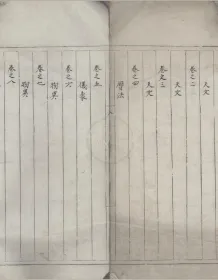 卷之二
天文
卷之三
天文
卷之四
曆法
卷之五
儀象
卷之六
鞠莫
卷之七
鞠莫
卷之八